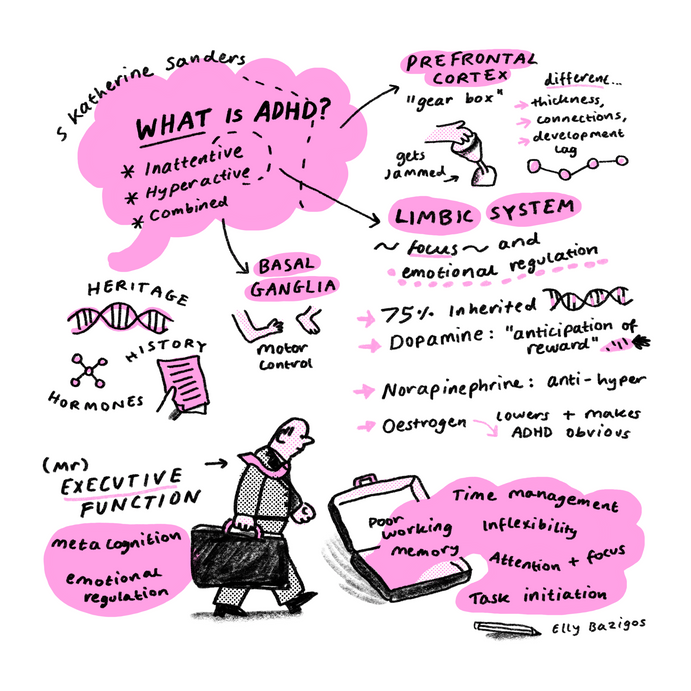 S Katherine Sanders
WHAT is ADHD?
* Inattentive
* Hyperactive
* Combined
PREFRONTAL
CORTEX
"gear box"
gets
jammed
different...
thickness,
connections,
development
lag
LIMBIC SYSTEM
~ focus ~ and
emotional regulation
BASAL
GANGLIA
motor
control
HERITAGE
HISTORY
HORMONES
75% Inherited
Dopamine: "anticipation of
reward"
Norapinephrine: anti-hyper
Oestrogen
lowers + makes
ADHD obvious
(Mr)
EXECUTIVE
FUNCTION
meta cognition
emotional
regulation
Poor
working
memory
Time management
Inflexibility
Attention + focus
Task initiation
Elly Bazigos